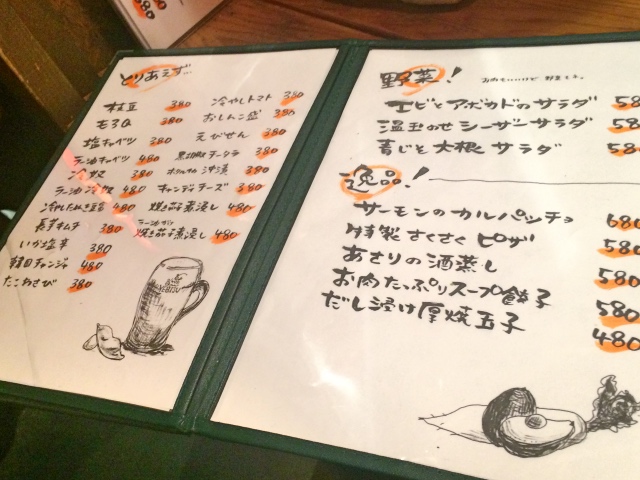 とりあえず…
枝豆 380
もろQ 380
塩キャベツ 380
ラー油キャベツ 480
冷奴 380
ラー油冷奴 480
冷したぬき豆腐 480
長芋キムチ 380
いか塩辛 380
韓国チャンジャ 480
たこわさび 380
冷やしトマト 380
おしんこ盛 380
えびせん 380
黒胡椒チータラ 380
ホタルイカ沖漬 380
キャンディチーズ 380
焼き茄子煮浸し 480
ラー油がけ
焼き茄子煮浸し 480
野菜!
お肉もいいけど 野菜もネ。
エビとアボカドのサラダ 58
温玉のせシーザーサラダ 58
青じと大根サラダ 58
逸品!
サーモンのカルパッチョ 680
特製さくさくピザ 580
あさりの酒蒸し 580
お肉たっぷりスープ餃子 580
だし浸け厚焼玉子 480